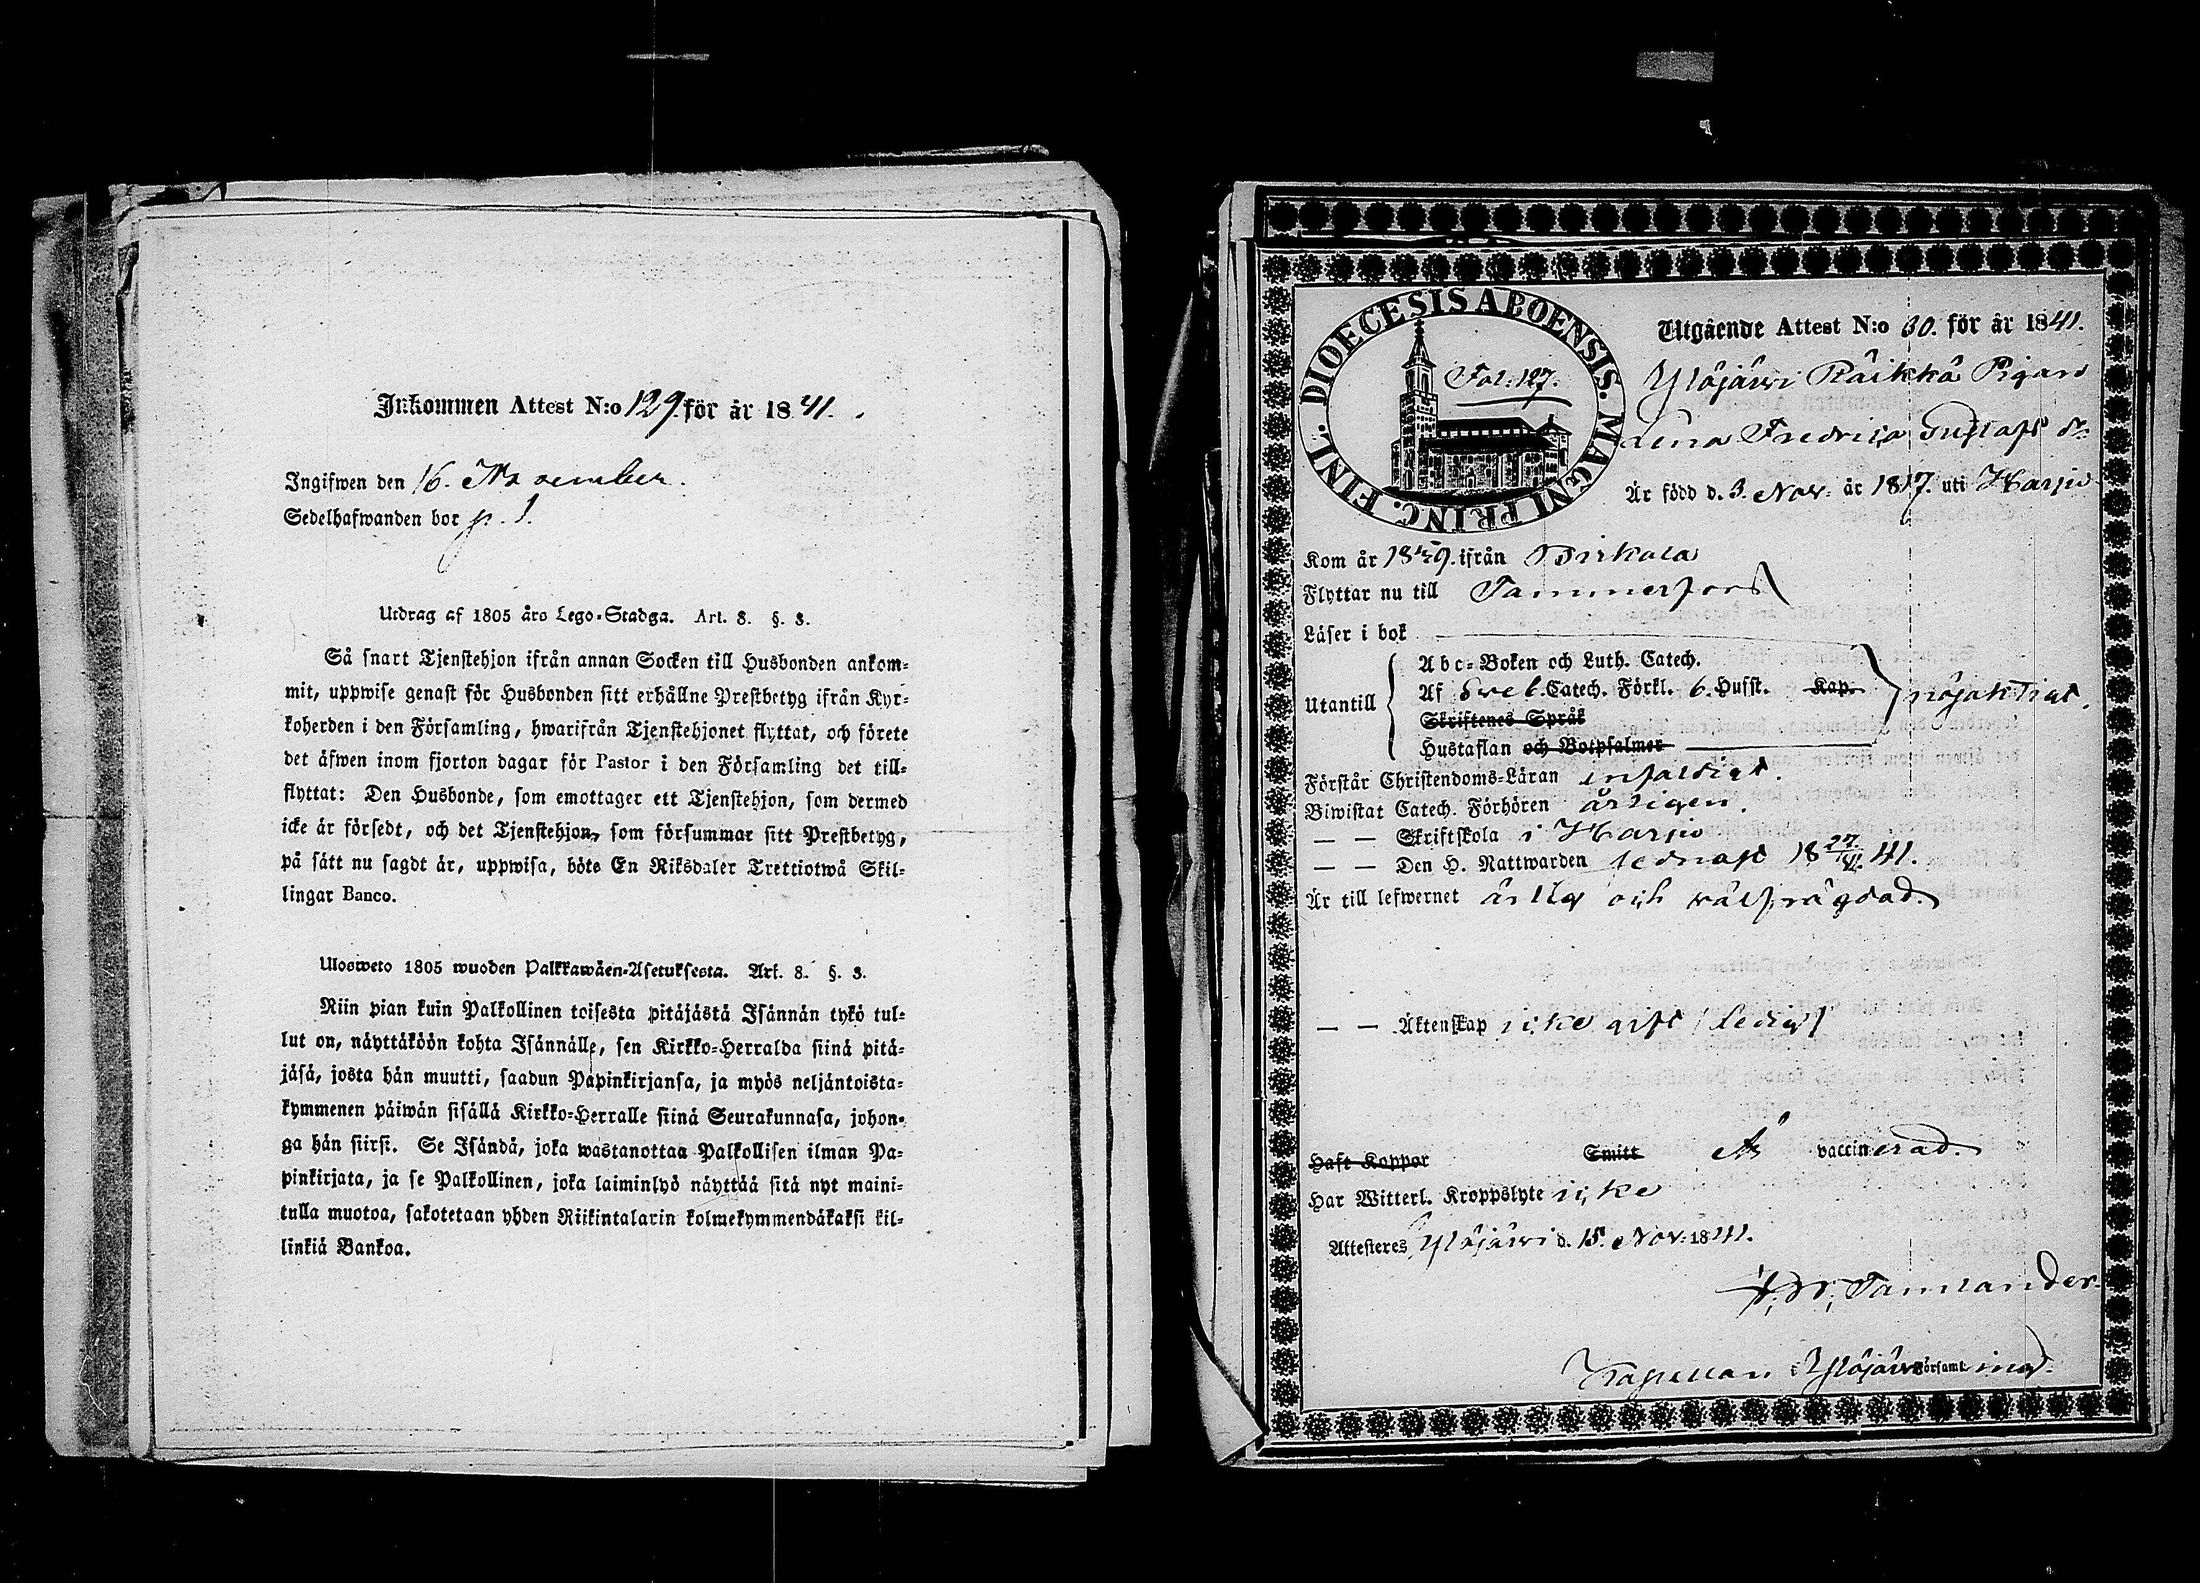 Inkommen Attest N:o 129. för år 1841.
Ingifwen den 16. November.
Sedelhafwanden bor p. 1.
Utdrag af 1805 års Lego-Stadga. Art. 8. §. 3.
Så snart Tjenstehjon ifrån annan Socken till Husbonden ankom-
mit, uppwise genast för Husbonden sitt erhållne Prestbetyg ifrån Kyr-
koherden i den Församling, hwarifrån Tjenstehjonet flyttat, och förete
det äfwen inom fjorton dagar för Pastor i den Församling det till-
flyttat: Den Husbonde, som emottager ett Tjenstehjon, som dermed
icke är försedt, och det Tjenstehjon, som försummar sitt Prestbetyg,
på sätt nu sagdt är, uppwisa, böte En Riksdaler Trettiotwå Skil-
lingar Banco.
Ulosweto 1805 wuoden Palkkawäen-Asetuksesta. Art. 8. §. 3.
Niin pian kuin Palkollinen toisesta pitäjästä Isännän tykö tul-
lut on, näyttäköön kohta Isännälle, sen Kirkko-Herralda siinä pitä-
jäsä, josta hän muutti, saadun Papinkirjansa, ja myös neljäntoista-
kymmenen päiwän sisällä Kirkko-Herralle siinä Seurakunnasa, johon-
ga hän siirsi. Se Isändä, joka wastanottaa Palkollisen ilman Pa-
pinkirjata, ja se Palkollinen, joka laiminlyö näyttää sitä nyt maini-
tulla muotoa, sakotetaan yhden Riikintalarin kolmekymmendäkaksi kil-
linkiä Bankoa.
DIOECESIS ABOENSIS. MAGNI PRINC. FINL.
Fol: 127.
Utgående Attest N:o 30. för år 1841.
Ylöjärwi Räikkä Pigan
Lena Fredrica Gustafs dr
Är född d. 3. Nov. år 1817. uti Harju
Kom år 1839. ifrån Birkala
Flyttar nu till Tammerfors
Läser i bok
Utantill
Abc-Boken och Luth. Catech.
Af Sveb. Catech. Förkl. 6. Hufst. Kap.
Skriftenes Språk
Hustaflan och Botpsalmer
nöjaktigt.
Förstår Christendoms-Läran enfaldigt.
Biwistat Catech. Förhören årligen.
— — Skriftskola i Harju
— — Den H. Nattwarden sednast 1841.
Är till lefwernet ärlig och wälfrägdad.
— — Äktenskap icke gift (Ledig)
Haft Koppor Smitt Är vaccinerad.
Har Witterl. Kroppslyte icke
Attesteres Ylöjärwi d. 15. Nov: 1841.
Tammander.
Kapellan i Ylöjärwi Församling.